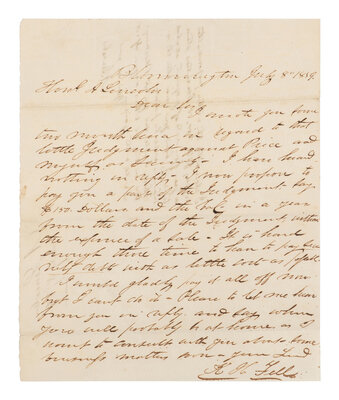 Bloomington July 8th 1859.
Honl A Lincoln
Dear Sir
I wrote you some
two months since in regard to that
little Judgement against Price and
myself as Security - I have heard
nothing in reply - I now propose to
pay you a part of the Judgement say
$150. Dollars and the bal. in a year
from the date of the Judgment, without
the expense of a Sale - It is hard
enough these times to have to pay
debt with as little cost as
I would gladly pay it all off now
but I can't do it - Please to let me hear
from you in reply and say when
you will probably be at home as I
want to consult with you about some
business matters soon - your friend
K H Fell